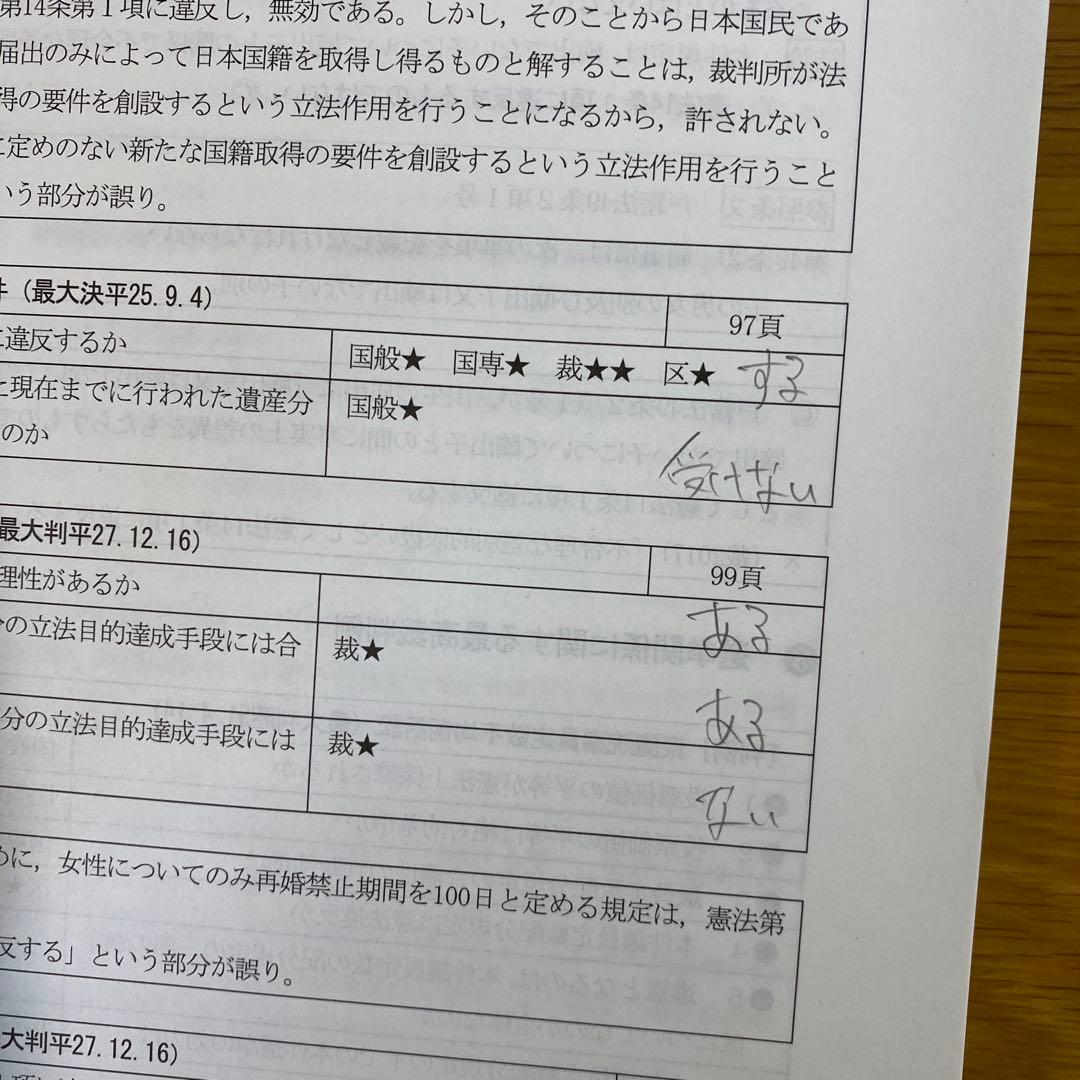 第14条第1項に違反し，無効である。しかし，そのことから日本国民であ
届出のみによって日本国籍を取得し得るものと解することは，裁判所が法
得の要件を創設するという立法作用を行うことになるから，許されない。
に定めのない新たな国籍取得の要件を創設するという立法作用を行うこと
いう部分が誤り。
件（最大決平25.9.4）
97頁
に違反するか
国般★ 国専★ 裁★★ 区★ する
に現在までに行われた遺産分
国般★
のか
受けない
最大判平27.12.16）
99頁
理性があるか
ある
分の立法目的達成手段には合
裁★
ある
分の立法目的達成手段には
裁★
ない
めに，女性についてのみ再婚禁止期間を100日と定める規定は，憲法第
反する」という部分が誤り。
大判平27.12.16）